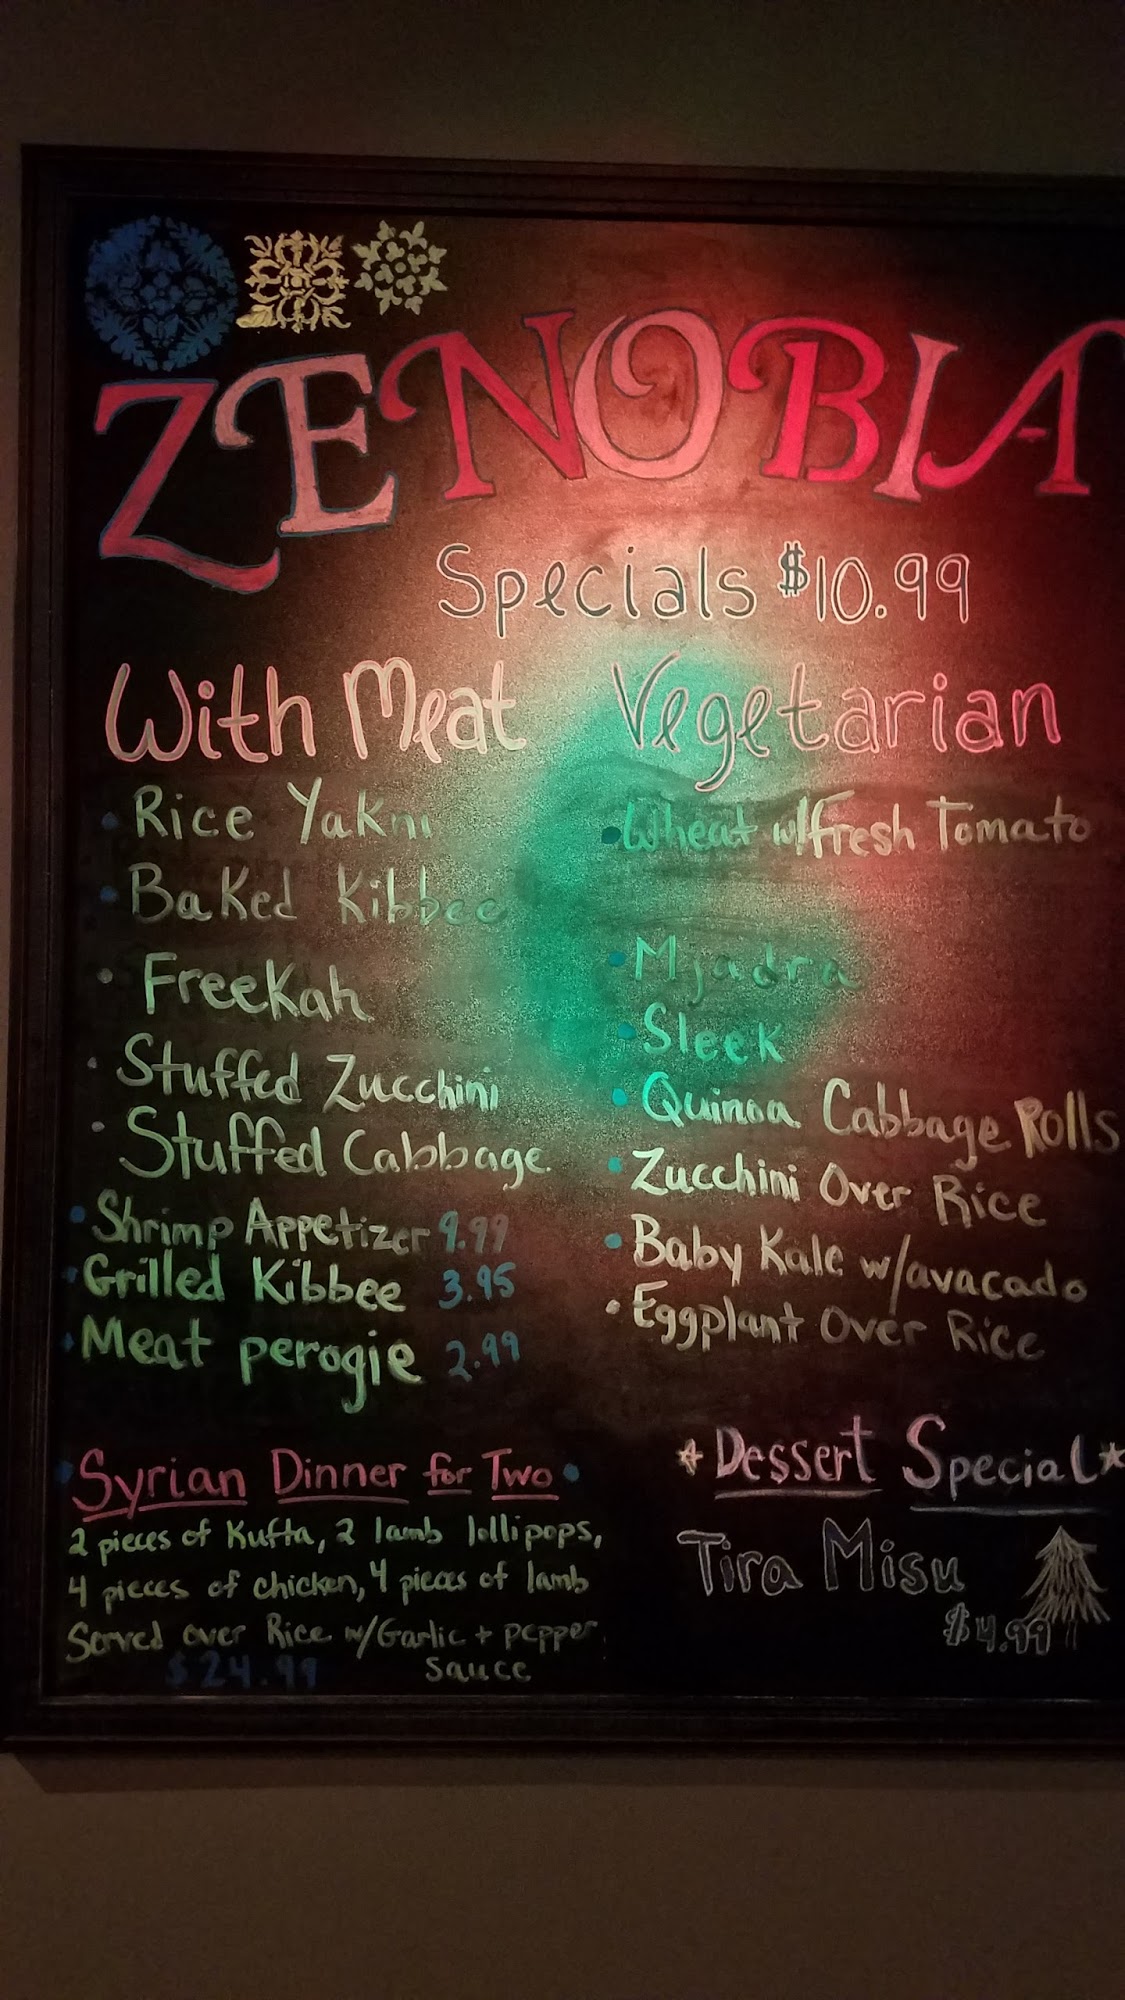 ZENOBIA
Specials $10.99
With Meat
• Rice Yakni
• Baked Kibbee
• Freekah
• Stuffed Zucchini
• Stuffed Cabbage
• Shrimp Appetizer 9.99
• Grilled Kibbee 3.95
• Meat perogie 2.99
Vegetarian
• Wheat w/Fresh Tomato
• Mjadra
• Sleek
• Quinoa Cabbage Rolls
• Zucchini Over Rice
• Baby Kale w/avacado
• Eggplant Over Rice
• Syrian Dinner for Two •
2 pieces of Kufta, 2 lamb lollipops,
4 pieces of chicken, 4 pieces of lamb
Served over Rice w/Garlic + pepper
sauce
$24.99
Dessert Special
Tira Misu
$4.99